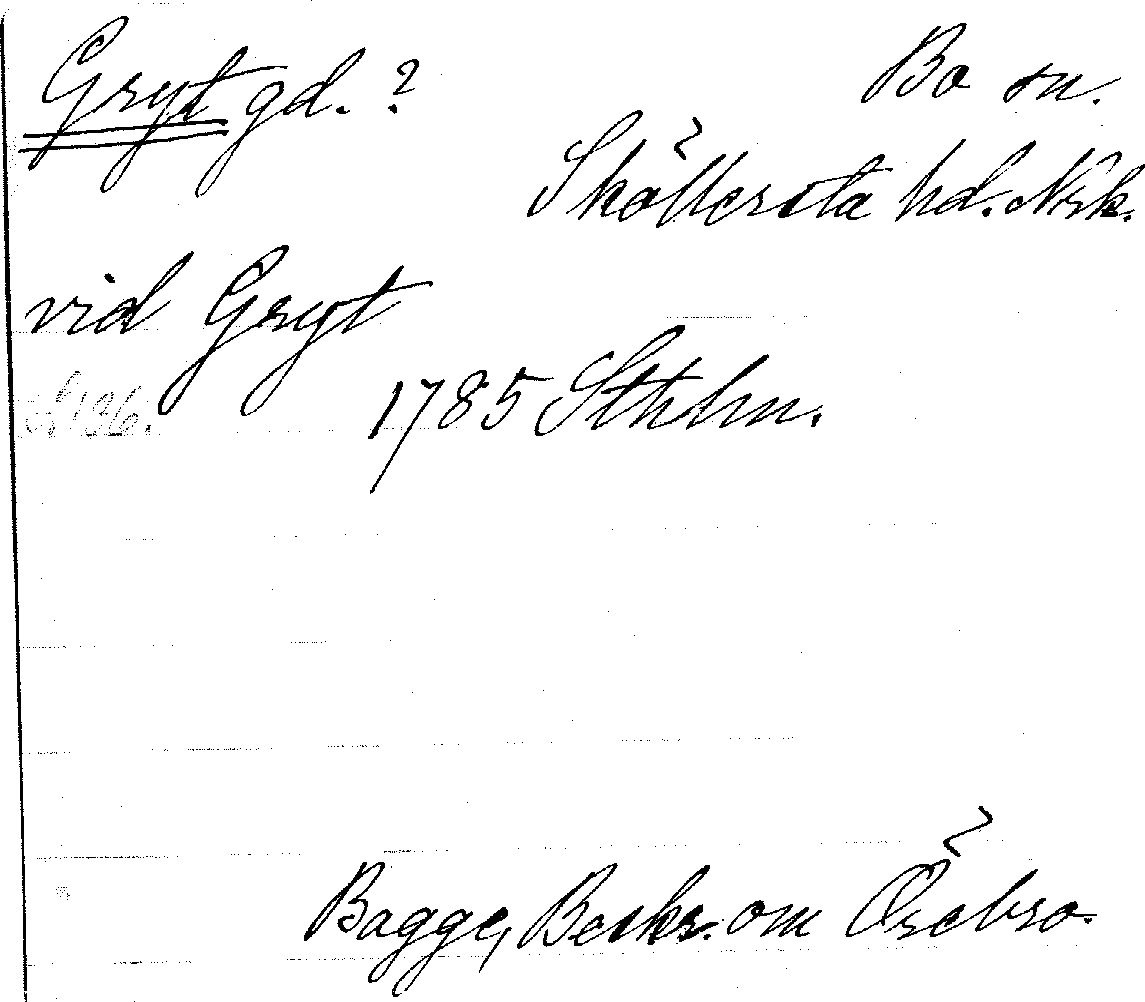 Gryt gd. ? Bo sn.
Sköllersta hd. Nrk.
vid Gryt
136. 1785 Sthlm.
Bagge, Beskr. om Örebro.